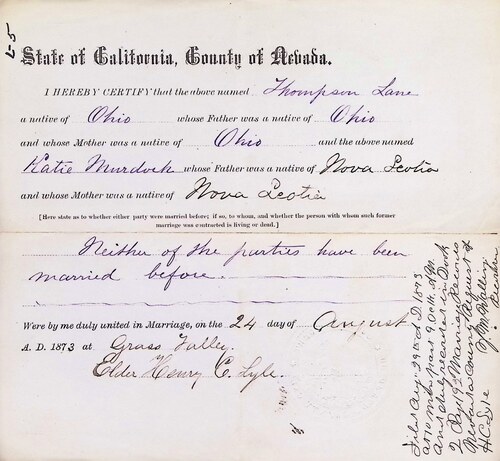 L-5
State of California, County of Nevada.
I HEREBY CERTIFY that the above named Thompson Lane
a native of Ohio whose Father was a native of Ohio
and whose Mother was a native of Ohio and the above named
Katie Murdock whose Father was a native of Nova Scotia
and whose Mother was a native of Nova Scotia
[Here state as to whether either party were married before; if so, to whom, and whether the person with whom such former
marriage was contracted is living or dead.]
Neither of the parties have been
married before.
Were by me duly united in Marriage, on the 24 day of August
A. D. 1873 at Grass Valley.
Elder Henry C. Lyle.
Filed Aug. 29th A D. 1873
at 10 min past 9 O.Clk A.M.
and duly recorded in Book
2 Page 193 Marriage Records
Nevada County, Request of
H C Lyle
Recorder